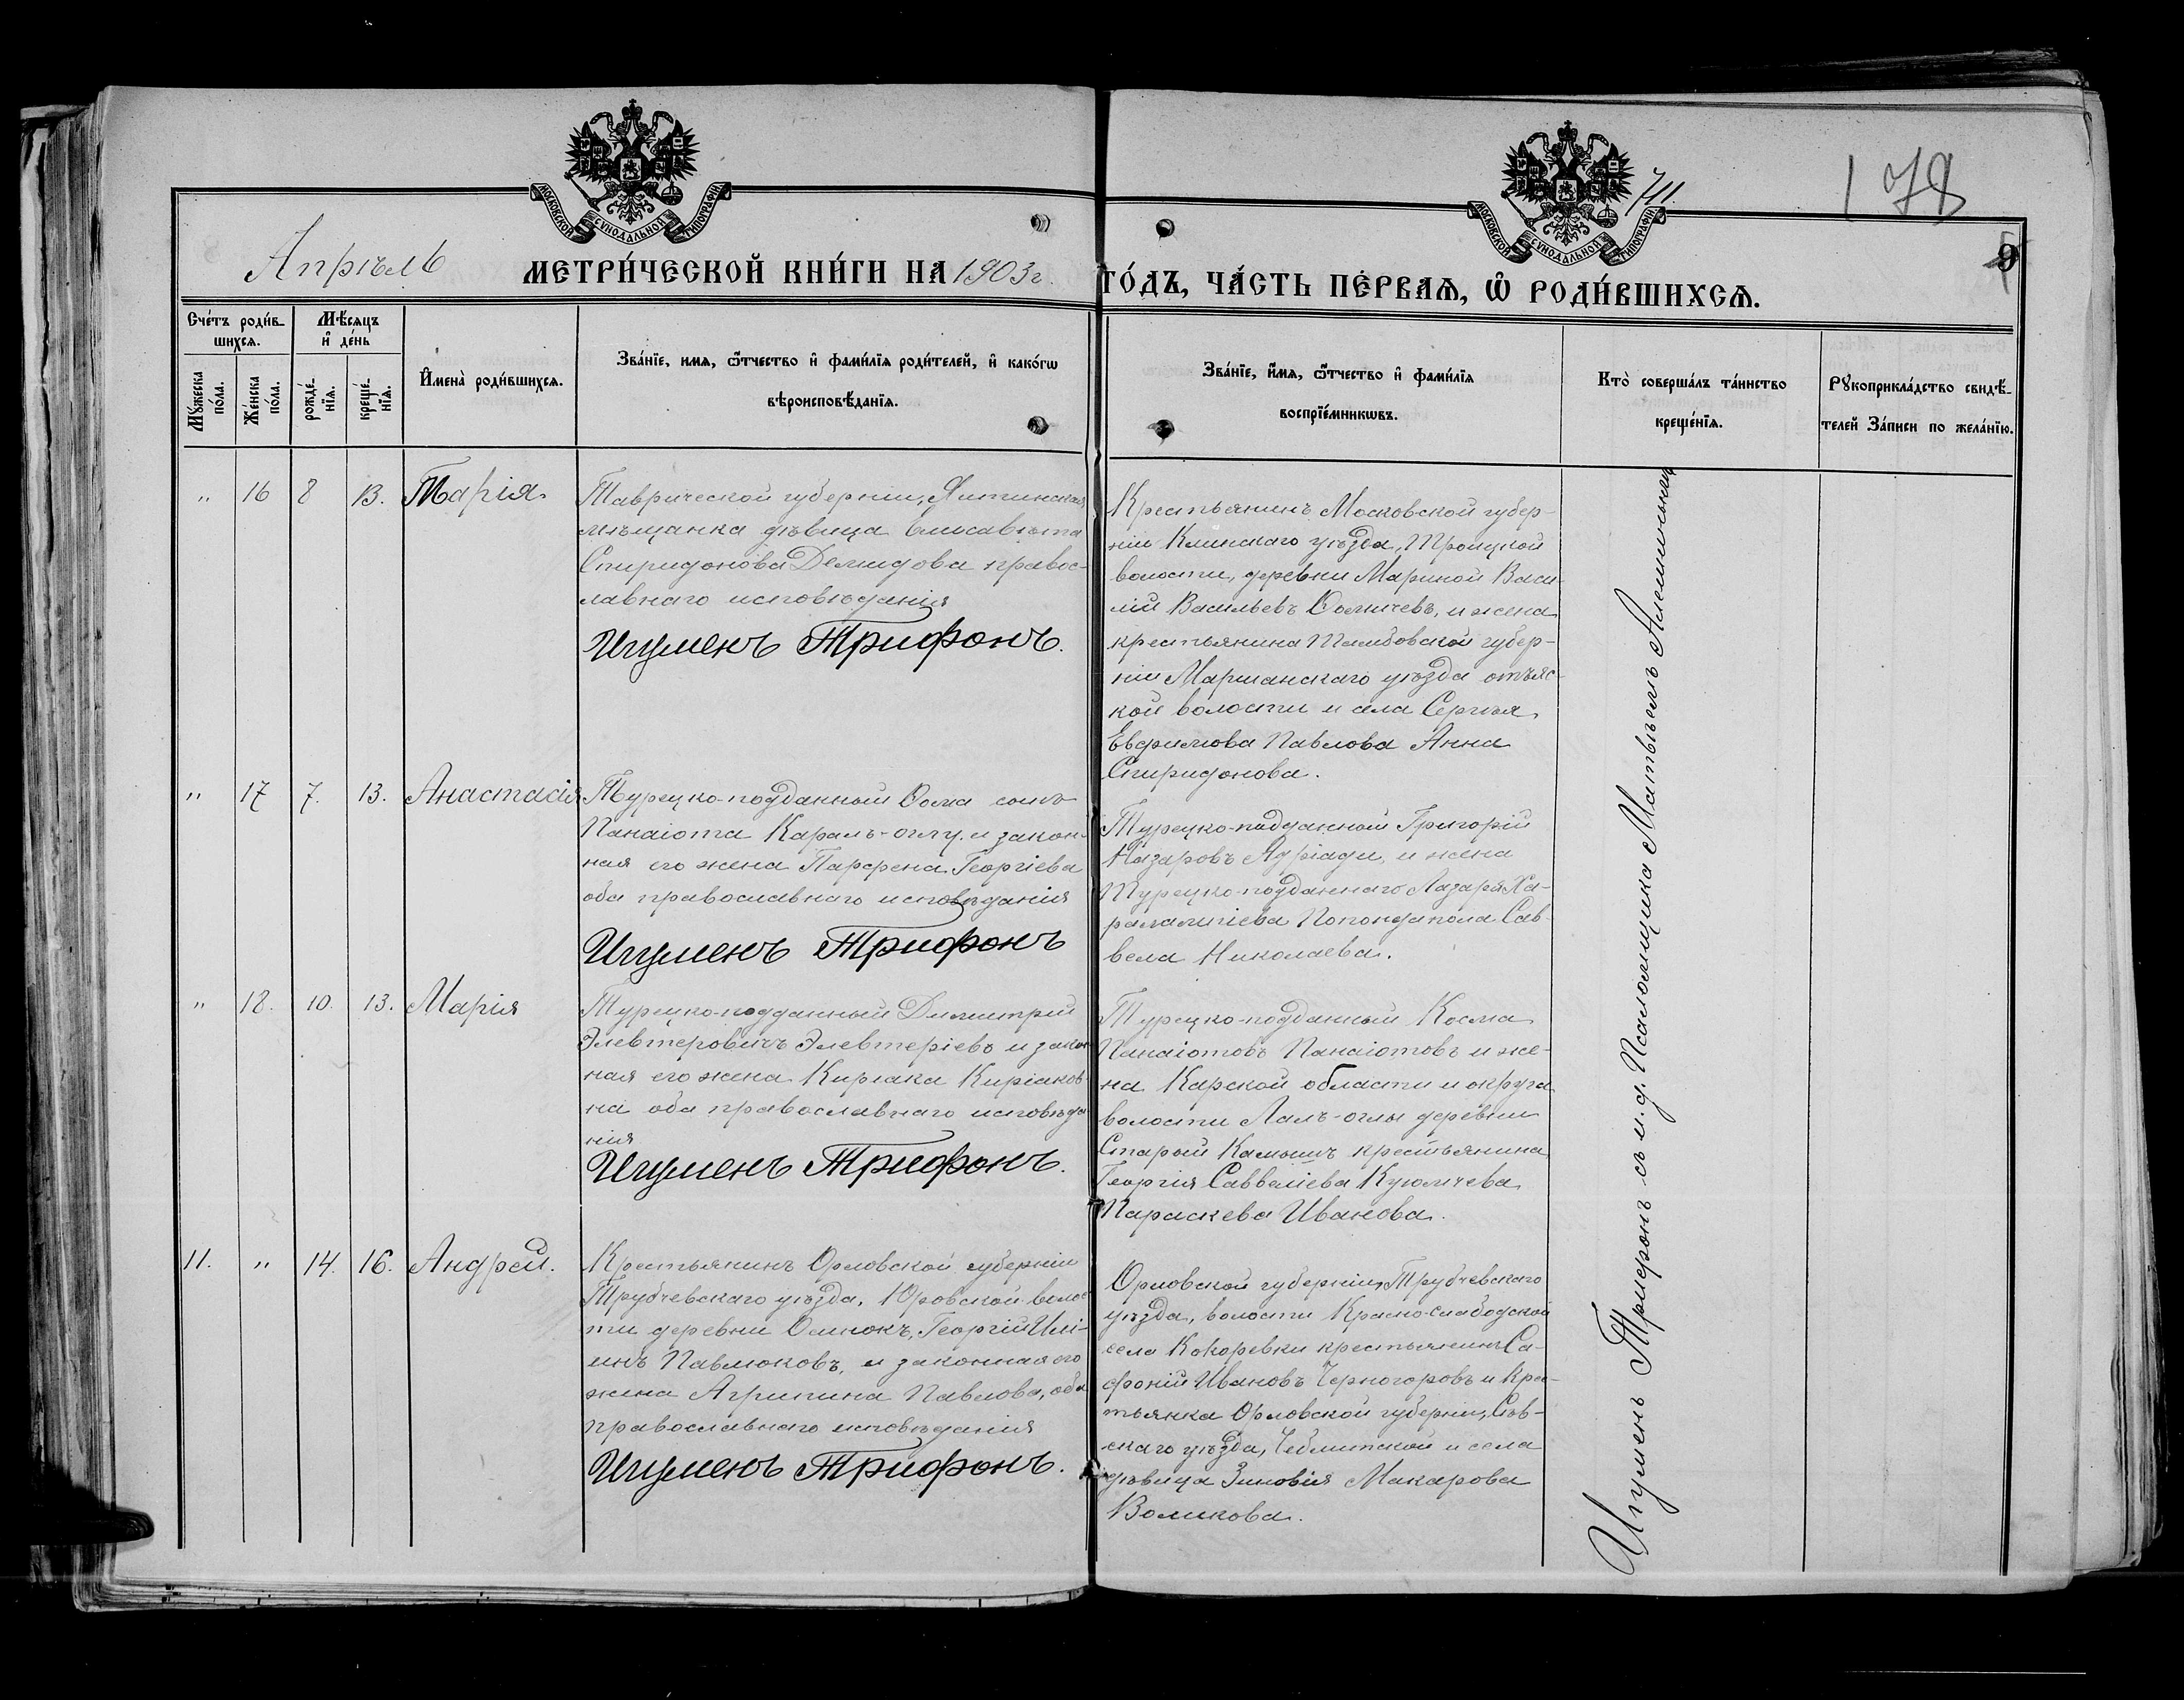 МОСКОВСКОЙ СУНОДАЛЬНОЙ ТИПОГРАФІИ
МОСКОВСКОЙ СУНОДАЛЬНОЙ ТИПОГРАФІИ
178
9
Апрѣль
МЕТРИ́ЧЕСКОЙ КНИ́ГИ НА 1903 г. ГО́ДЪ, ЧА́СТЬ ПЕ́РВАѦ, Ѽ РОДИ́ВШИХСѦ.
Сче́тъ роди́в-
шихсѧ.
Мꙋ́жеска по́ла.
Же́нска по́ла.
Мѣ́сяцъ
и҆ де́нь
рожде́-
нїѧ.
креще́-
нїѧ.
И҆мена̀ роди́вшихсѧ.
Зва́нїе, имѧ, ѿтчество и҆ фами́лїѧ роди́телей, и҆ како́гѡ
вѣроисповѣ́данїѧ.
Зва́нїе, и҆мѧ, ѿтчество и҆ фами́лїѧ
воспрїе́мникѡвъ.
Кто̀ соверша́лъ та́инство
креще́нїѧ.
Рꙋкоприкла́дство свидѣ́-
телей за́писи по жела́нїю.
" 16 8 13. Марія.
Таврической губерніи, Ялтинская
мѣщанка дѣвица Елисавета
Спиридонова Демидова правос-
лавнаго исповѣданія
Игуменъ Трифонъ.
Крестьянинъ Московской губер-
ніи Клинскаго уѣзда, Троицкой
волости, деревни Мариной Васи-
лій Васильевъ и жена
крестьянина Тамбовской губер-
ніи Маршанскаго уѣзда отъяс-
кой волости и села Сергѣя
Евфимова Павлова Анна
Спиридонова.
" 17 7. 13. Анастасія
Турецко-подданный Ѳома сынъ
Панаіота Караль-оглу и закон-
ная его жена Парѳена Георгіева
оба православнаго исповѣданія
Игуменъ Трифонъ
Турецко-подданной Григорій
Назаровъ и жена
Турецко-подданнаго Лазаря Ха-
ралампіева Сав-
вела Николаева.
" 18. 10. 13. Марія
Турецко-подданный Димитрій
Элевтеровичъ Элевтеріевъ и закон-
ная его жена Киріака Киріаков-
на оба православнаго исповѣда-
нія
Игуменъ Трифонъ.
Турецко-подданный Косма
Панаіотовъ Панаіотовъ и же-
на Карской области и округа
волости Лалъ-оглы деревни
Старой крестьянина
Георгія Саввеліева
Параскева Иванова.
11. " 14. 16. Андрей.
Крестьянинъ Орловской губерніи
Трубчевскаго уѣзда, Юровской волос-
ти деревни Олинокъ, Георгій Илі-
инъ Павлюковъ, и законная его
жена Агрипина Павлова, оба
православнаго исповѣданія
Игуменъ Трифонъ.
Орловской губерніи, Трубчевскаго
уѣзда, волости Красно-слабодской
села Кокоревки крестьянинъ Са-
фроній Ивановъ Черногоровъ и крес-
тьянка Орловской губерніи, Сѣв-
скаго уѣзда, и села
дѣвица Зиновія Макарова
Воликова.
Игуменъ Трифонъ съ и. д. Псаломщика Матвѣемъ